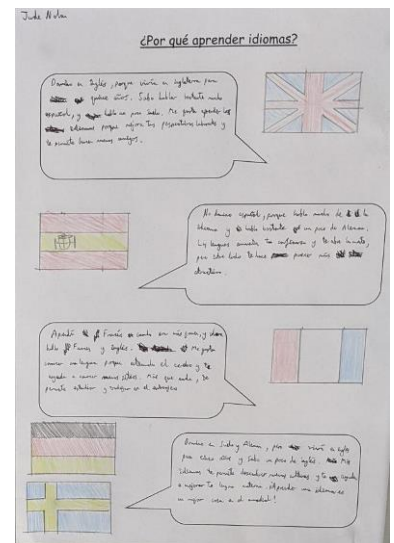 Jude Nolan
¿Por qué aprender idiomas?
Domino en Inglés, porque viví en Inglaterra para
quince años. Sabo hablar bastante mucho
español, y hablo un poco Sueco. Me gusta aprender los
idiomas porque mejora tus perspectivas laborales y
te permite hacer nuevos amigos.
No domino español, porque hablo mucho de la
idioma y hablo bastante un poco de Alemán.
Las lenguas aumenta tu confianza y te abre la mente,
pero sobre todo te hace parecer más
atractivo.
Aprendí Francés cuando era más joven, y ahora
hablo Francés y Inglés. Me gusta
conocer una lengua porque estimula el cerebro y te
ayuda a conocer nuevos sitios. Más que nada, te
permite estudiar y trabajar en el extranjero
Domino en Sueco y Alemán, pero viví en
para cinco años y sabo un poco de inglés. Mis
idiomas te permite descubrir nuevas culturas y te ayuda
a mejorar tu lengua materna. Aprender una idioma es
la mejor cosa en el mundo!